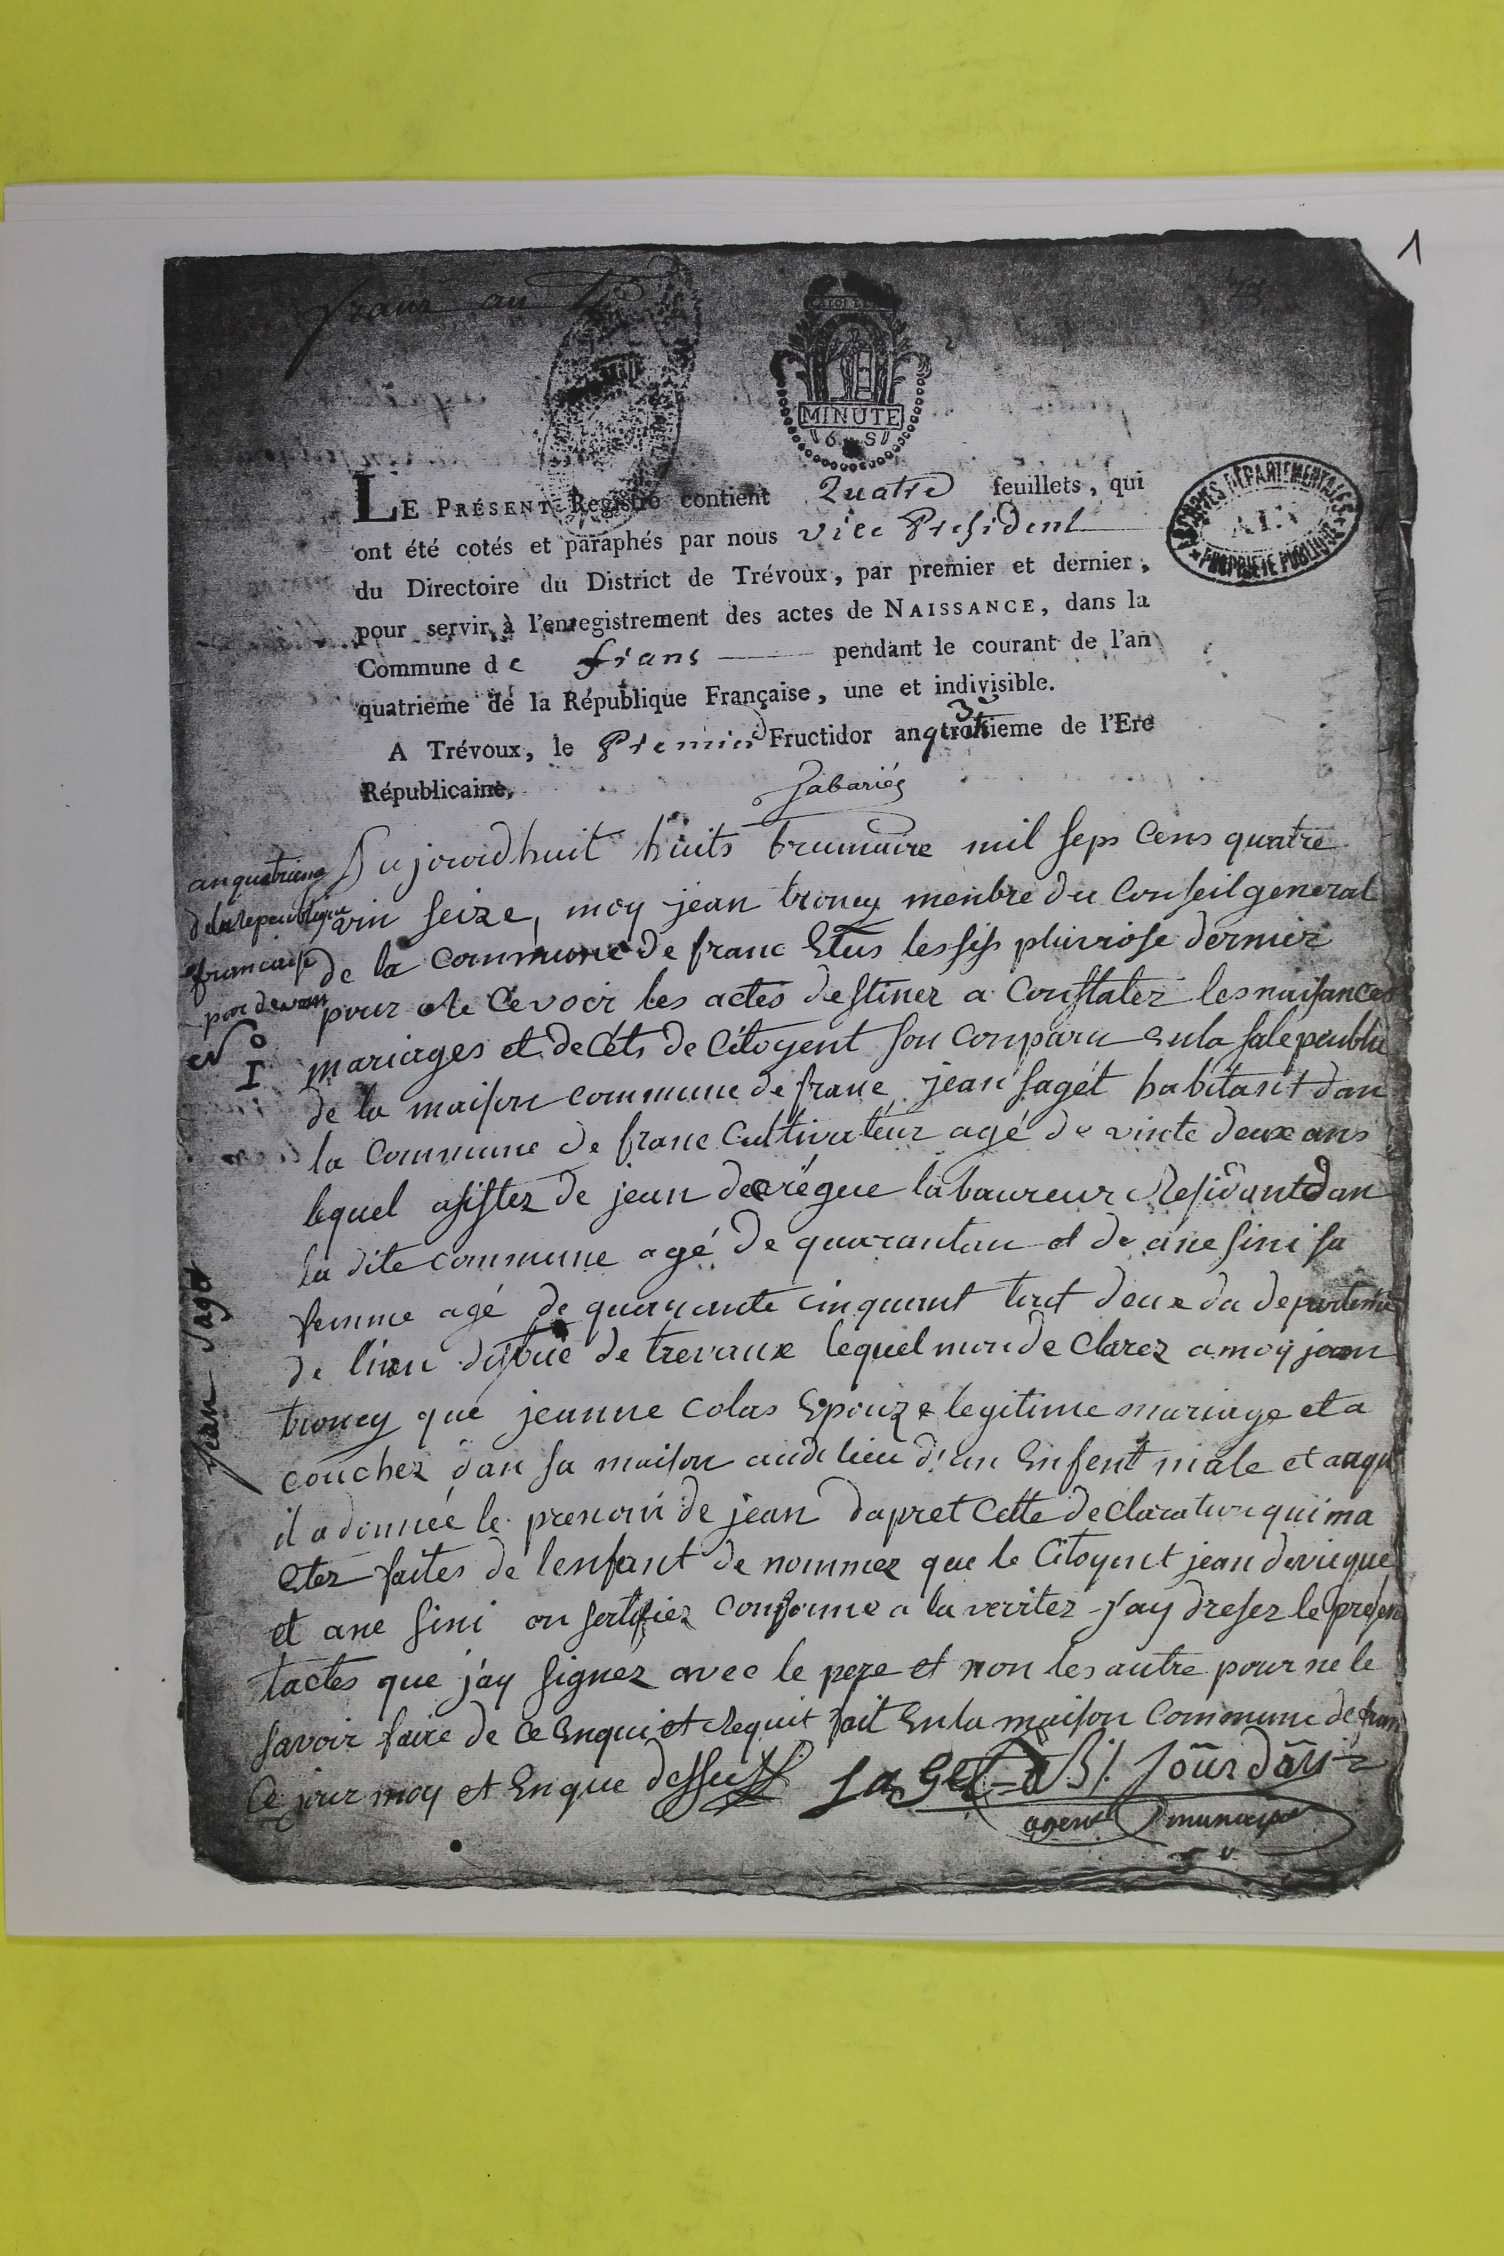 1
frans an 4
MINUTE
6 S
ARCHIVES DÉPARTEMENTALES
AIN
PROPRIÉTÉ PUBLIQUE
LE PRÉSENT Registre contient Quatre feuillets, qui
ont été cotés et paraphés par nous vice President
du Directoire du District de Trévoux, par premier et dernier,
pour servir à l'enregistrement des actes de NAISSANCE, dans la
Commune de frans pendant le courant de l'an
quatrieme de la République Française, une et indivisible.
A Trévoux, le Premier Fructidor an troisieme de l'Ere
Républicaine.
an quatrieme
de la republique
francaise
par devan
N° 1
jean saget
Aujourdhuit huits brumaire mil seps cens quatre
vin seize, moy jean troncy menbre du conseil general
de la commune de franc Elus lessis pluviose dernier
pour Re cevoir les actes destinez a constater les naisances
mariages et decéts de citoyent son conparu en la sale peublu
de la maison commune de franc jean saget habitant dan
la commune de franc cultivateur agé de vinte deux ans
lequel asistez de jean derégue labaureur Residant dan
la dite commune agé de quarantan et de ane sini sa
femme agé de quarante cinquant tout deux du departeme
de l'ain distrie de trevoux lequel mon de clarez a moy jean
troncy que jeanne colas Epouze legitime mariage et a
couchez dan sa maison audi lieu d'un Enfent male et auqu
il a donnée le prenom de jean dapret cette declaration qui ma
Etez faites de lenfant de nommez que le Citoyent jean deriegue
et ane sini on sertifiez conforme a la veritez j'ay dresez le présen
tactes que j'ay signez avec le pere et non les autre pour ne le
savoir faire de ce enqui et Requit fait en la maison commune de fran
Ce jour moy et Enque dessus saget Jourdan
agent municipal